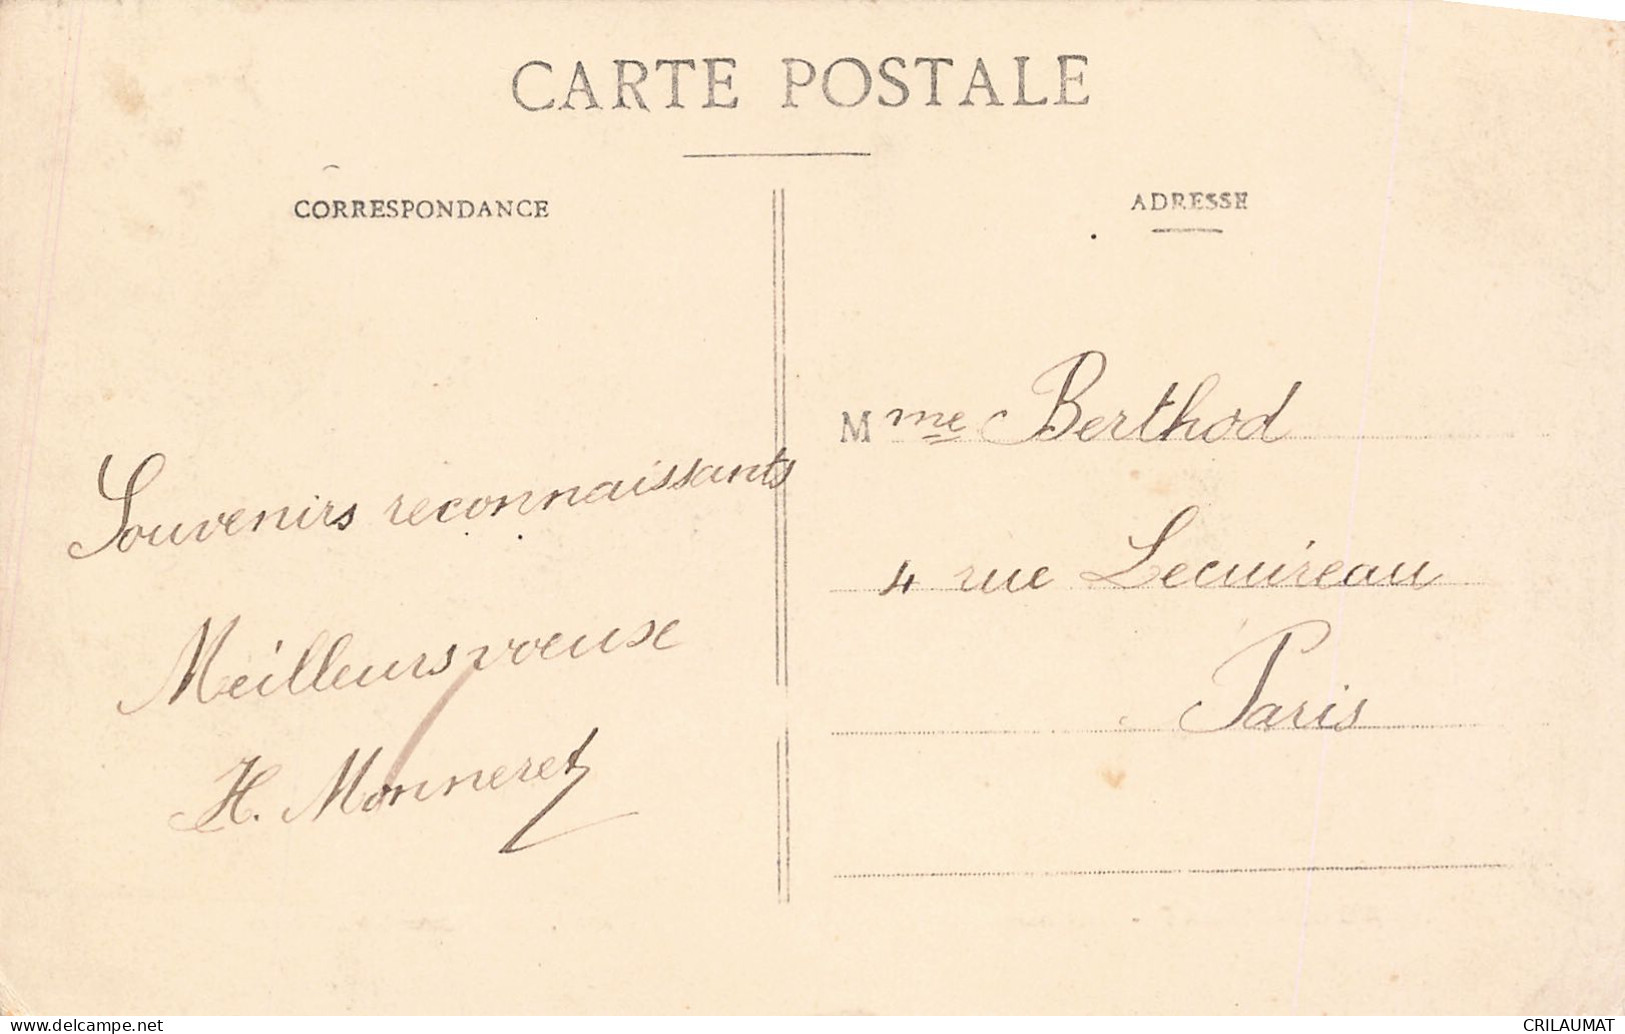 CARTE POSTALE
CORRESPONDANCE
ADRESSE
Souvenirs reconnaissants
Meilleurs voeux
H. Monneret
Mme Berthod
4 rue Lecuireau
Paris
delcampe.net
CRILAUMAT